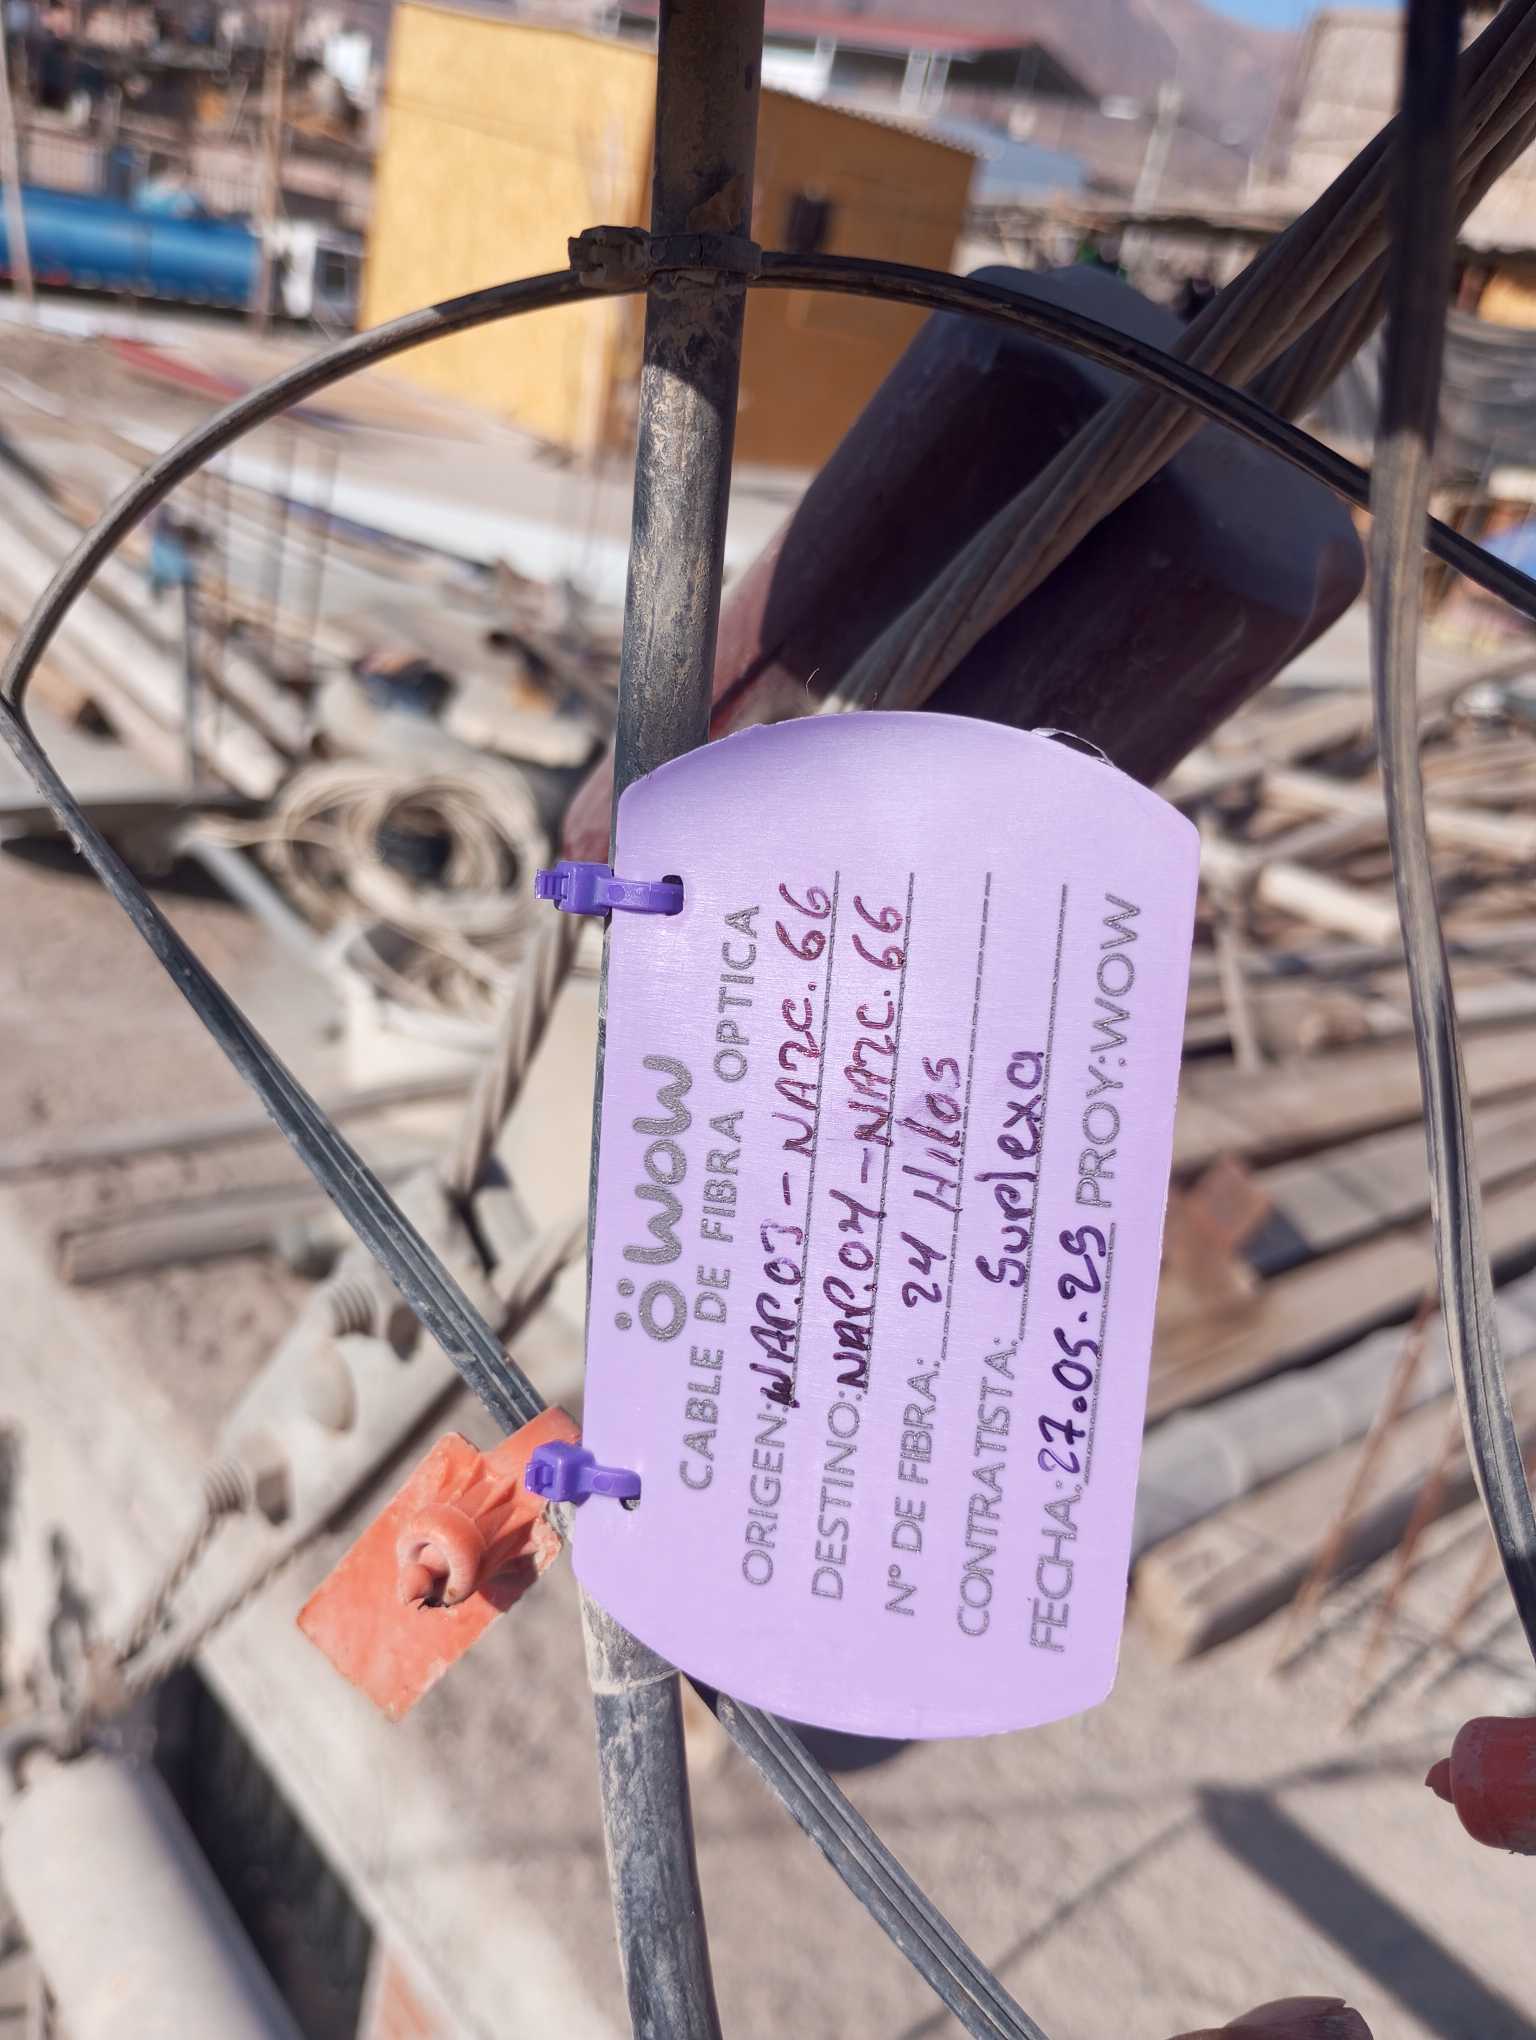 wow
CABLE DE FIBRA OPTICA
ORIGEN: NAP.03 - NAZC. 66
DESTINO: NAP.04 - NAZC. 66
N° DE FIBRA: 24 Hilos
CONTRATISTA: Surlexa
FECHA: 27.05.25 PROY:WOW